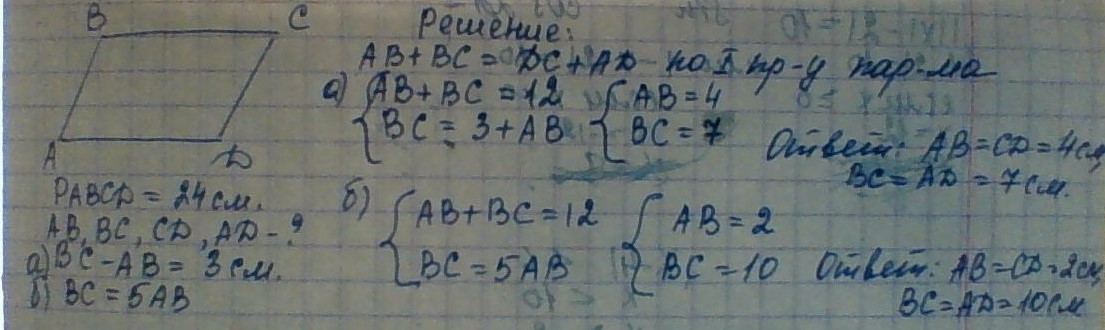 B C
A D
PABCD = 24 см.
AB, BC, CD, AD - ?
а) BC - AB = 3 см.
б) BC = 5AB
Решение:
AB + BC = DC + AD по I пр-у пар-ма
а) { AB + BC = 12 { AB = 4
BC = 3 + AB BC = 7
Ответ: AB = CD = 4 см,
BC = AD = 7 см.
б) { AB + BC = 12 { AB = 2
BC = 5AB BC = 10
Ответ: AB = CD = 2 см,
BC = AD = 10 см